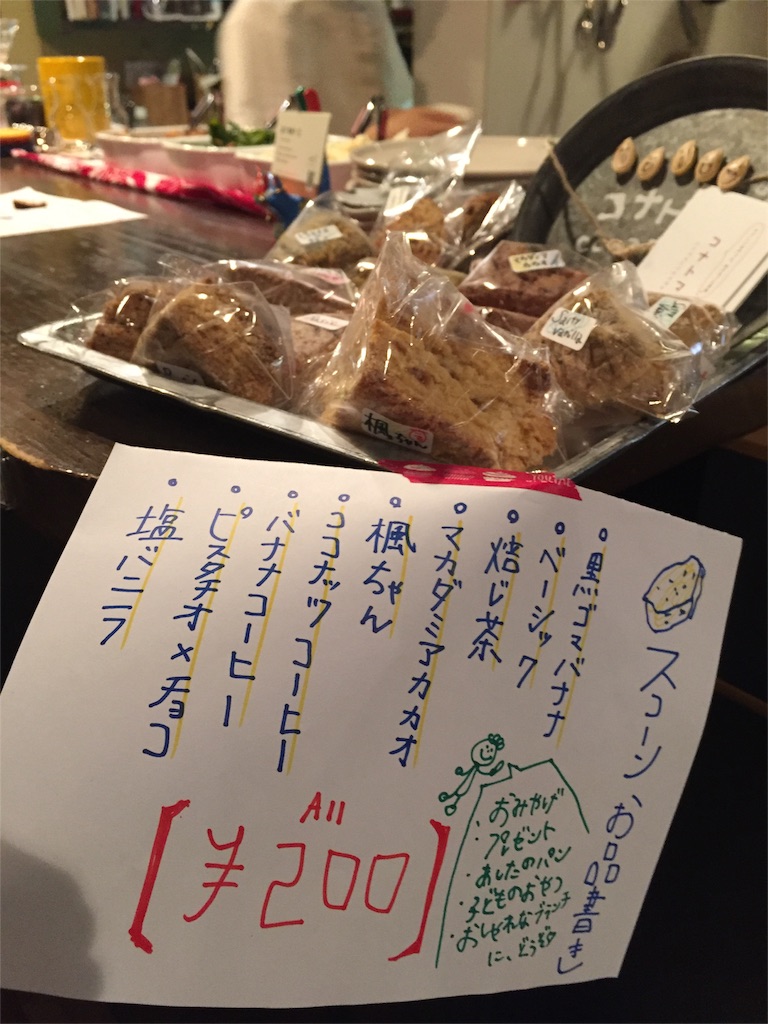 コナト
楓ちゃん
スコーン お品書き
・黒ゴマバナナ
・ベーシック
・焙じ茶
・マカダミアカカオ
・楓ちゃん
・ココナッツコーヒー
・バナナコーヒー
・ピスタチオ×チョコ
・塩バニラ
All
【¥200】
おみやげ
・プレゼント
・あしたのパン
・子どものおやつ
・おしゃれなブランチ
に、どうぞ